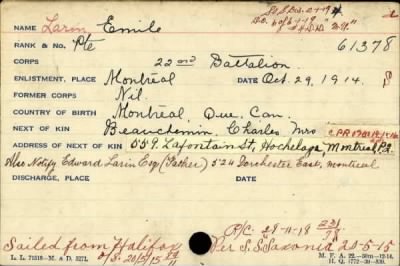 S.O.S. Dis. 2-1-19
NAME Larin Emile
D.O. 60/67-19 "2-9"
RANK & NO. Pte 61378
CORPS 22nd Battalion
ENLISTMENT, PLACE Montréal DATE Oct. 29, 1914.
FORMER CORPS Nil.
COUNTRY OF BIRTH Montréal, Que, Can.
NEXT OF KIN Beauchemin, Charles, Mrs
ADDRESS OF NEXT OF KIN 559 Lafontain St, Hochelaga, Montreal, P.Q.
Also Notify Edward Larin Esq (Father) 524 Dorchester East, Montreal
DISCHARGE, PLACE DATE
R/C. 29-11-18
Sailed from Halifax Per S.S. Saxonia 20-5-15
O/S. 20/5/15
L. L. 71318—M. & D. 5271. M. F. A. 22.—50m.—12-14.
H. Q. 1772-39-839.